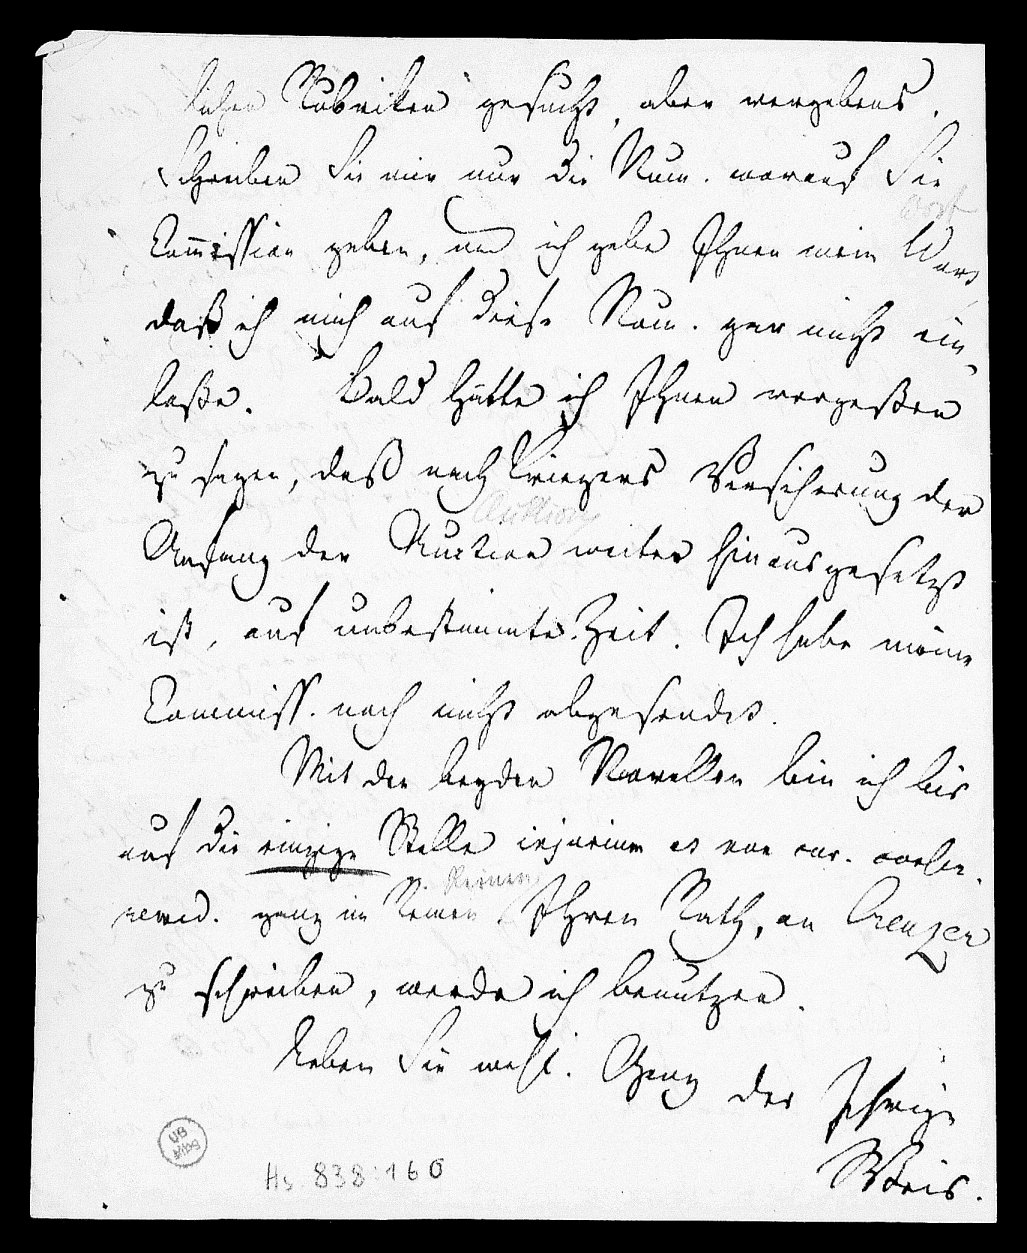 lichen Rubriken gesucht, aber vergebens.
Schreiben Sie mir nur die Num. worauf Sie
Wort
Com̄ission geben, und ich gebe Ihnen mein Wort,
daß ich mich auf diese Num. gar nicht ein-
laße. Bald hätte ich Ihnen vergeßen
zu sagen, daß nach Kriegers Versicherung der
Auktion
Anfang der Auction weiter hinausgesetzt
ist, auf unbestimmte Zeit. Ich habe meine
Commiss. noch nicht abgesendet.
Mit den beyden Novellen bin ich bis
auf die einzige Stelle injuriam es
ganz im Reinen Ihren Rath, an Creuzer
Reinen
zu schreiben, werde ich benutzen.
Leben Sie wohl. Ganz der Ihrige
Weis.
UB
Mbg
Hs. 838:160